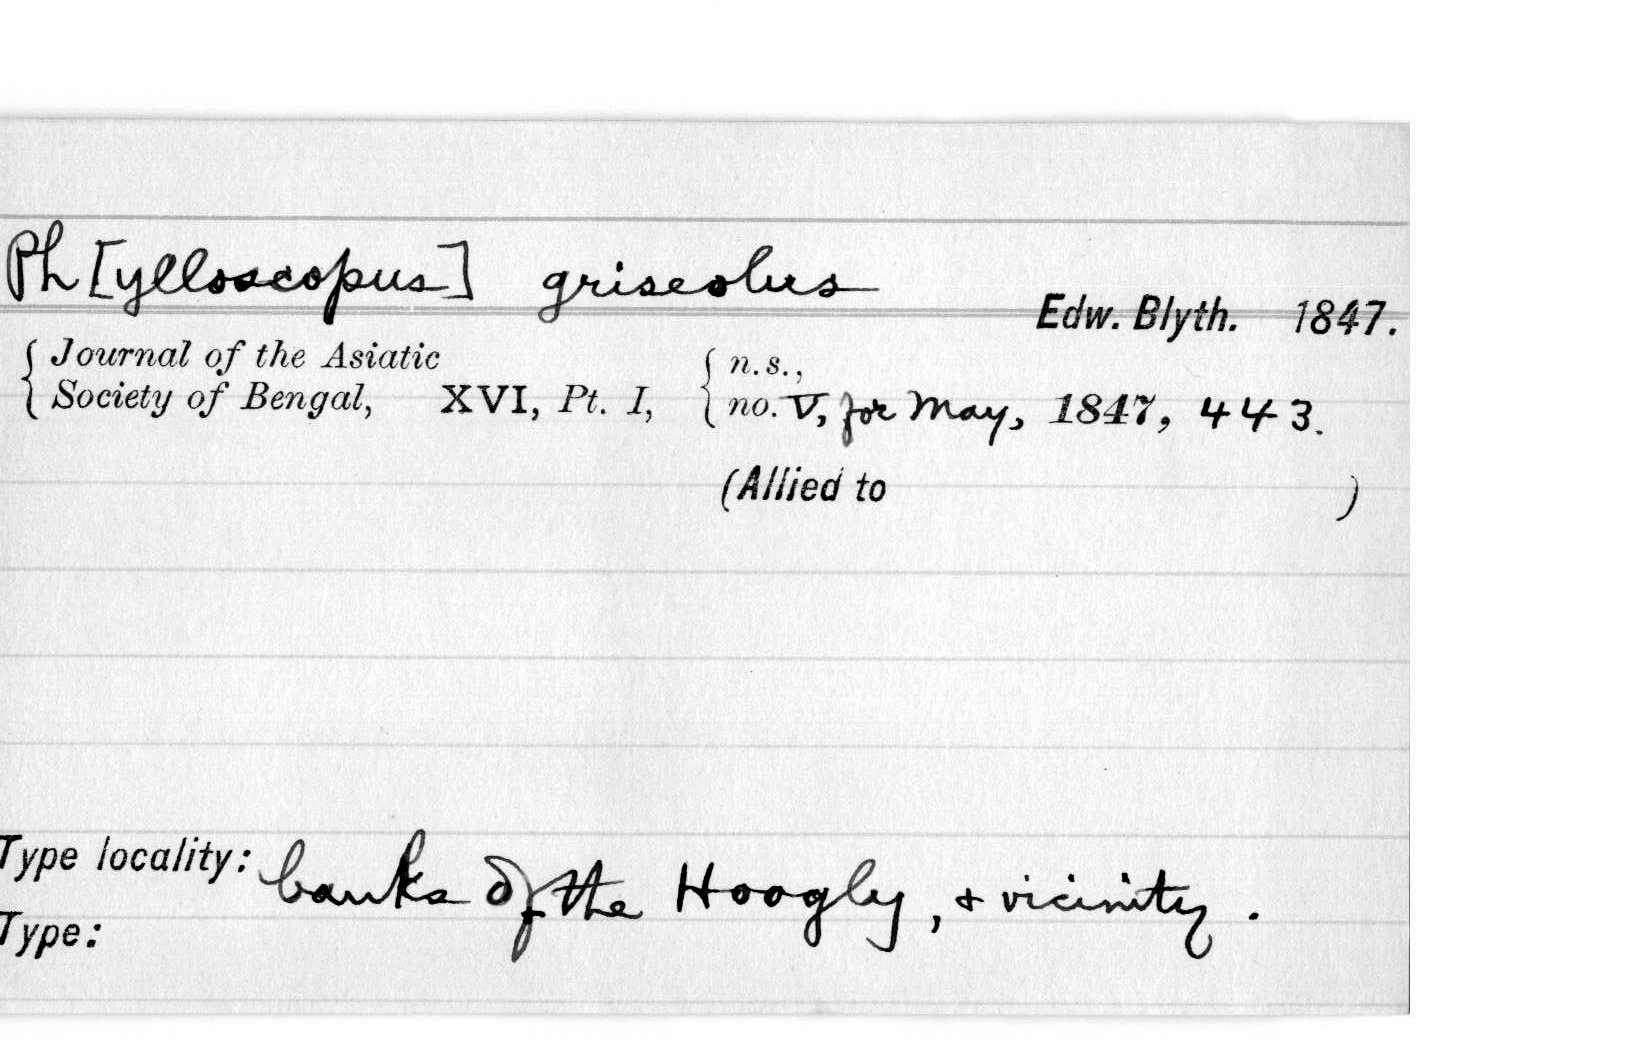 Ph[ylloscopus] griseolus
Edw. Blyth. 1847.
Journal of the Asiatic
Society of Bengal, XVI, Pt. I,
n.s.,
no. V, for May, 1847, 443.
(Allied to )
Type locality: banks of the Hoogly, & vicinity.
Type: